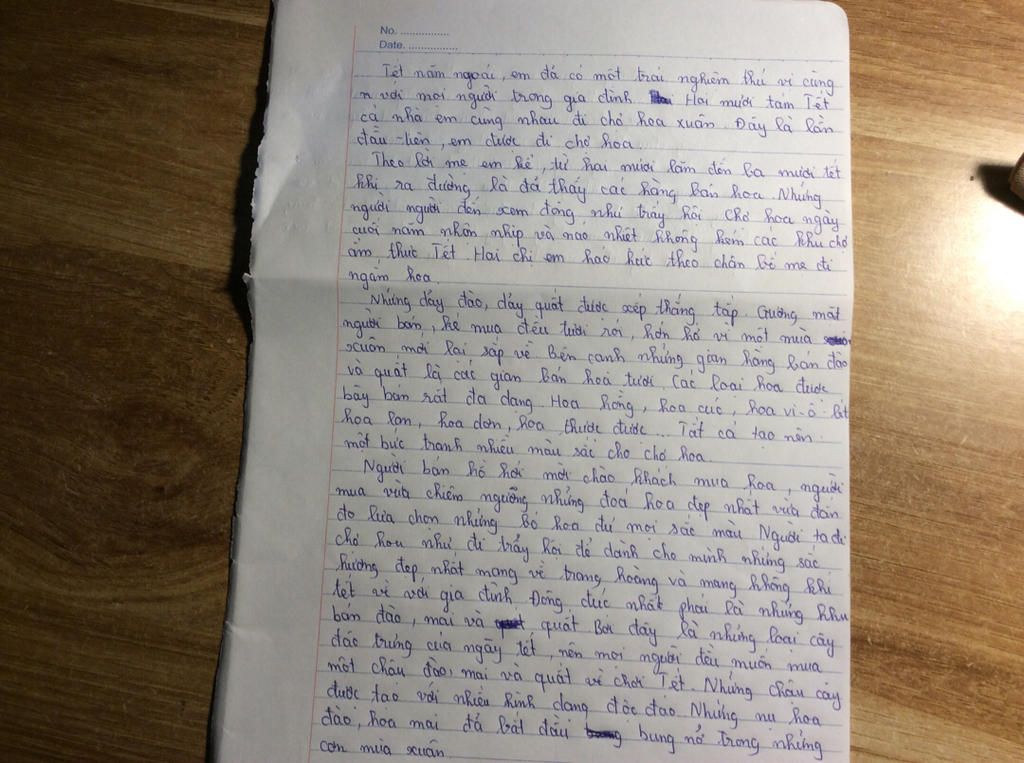 No. ................
Date. ................
Tết năm ngoái, em đã có một trải nghiệm thú vị cùng
n với mọi người trong gia đình Hai mươi tám Tết
cả nhà em cùng nhau đi chợ hoa xuân. Đây là lần
đầu tiên, em được đi chợ hoa.
Theo lời mẹ em kể, từ hai mươi lăm đến ba mươi tết
khi ra đường là đã thấy các hàng bán hoa. Những
người người đến xem đông như trẩy hội. Chợ hoa ngày
cuối năm nhộn nhịp và náo nhiệt không kém các khu chợ
ẩm thực Tết. Hai chị em háo hức theo chân bố mẹ đi
ngắm hoa.
Những dãy đào, dãy quất được xếp thẳng tắp. Gương mặt
người bán, kẻ mua đều tươi rói, hớn hở vì một mùa
xuân mới lại sắp về. Bên cạnh những gian hàng bán đào
và quất là các gian bán hoa tươi. Các loại hoa được
bày bán rất đa dạng. Hoa hồng, hoa cúc, hoa vi-ô-lét
hoa lan, hoa dơn, hoa thược dược... Tất cả tạo nên
một bức tranh nhiều màu sắc cho chợ hoa.
Người bán hồ hởi mời chào khách mua hoa, người
mua vừa chiêm ngưỡng những đoá hoa đẹp nhất vừa đắn
đo lựa chọn những bó hoa đủ mọi sắc màu. Người ta đi
chợ hoa như đi trẩy hội để dành cho mình những sắc
hương đẹp nhất mang về trang hoàng và mang không khí
tết về với gia đình. Đông đúc nhất phải là những khu
bán đào, mai và quất. Bởi đây là những loại cây
đặc trưng của ngày tết, nên mọi người đều muốn mua
một chậu đào, mai và quất về chơi Tết. Những chậu cây
được tạo với nhiều hình dạng độc đáo. Những nụ hoa
đào, hoa mai đã bắt đầu bung nở trong những
cơn mưa xuân.